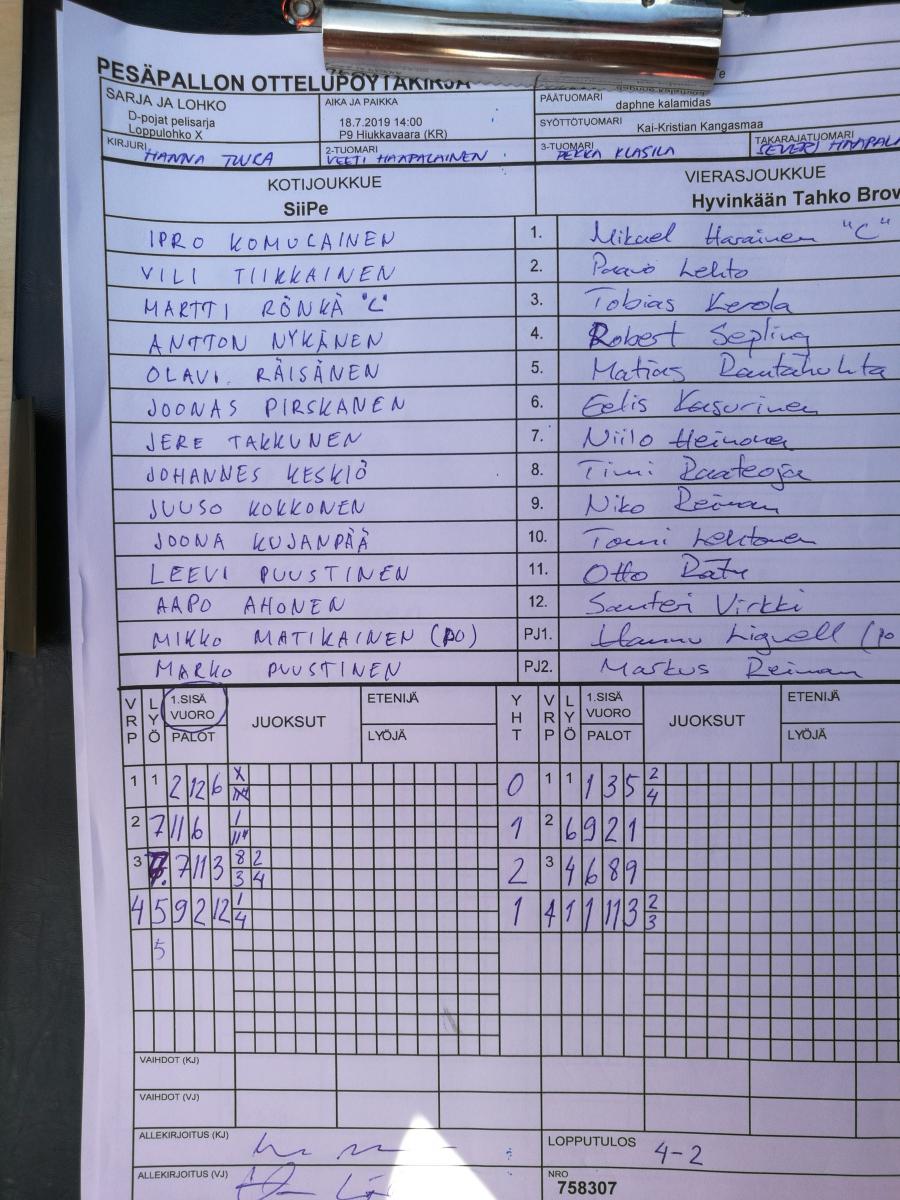 PESÄPALLON OTTELUPÖYTÄKIRJA
SARJA JA LOHKO
D-pojat pelisarja
Loppulohko X
AIKA JA PAIKKA
18.7.2019 14:00
P9 Hiukkavaara (KR)
PÄÄTUOMARI
daphne kalamidas
SYÖTTÖTUOMARI Kai-Kristian Kangasmaa
KIRJURI HANNA TUICA
2-TUOMARI VEETI HAAPALAINEN
3-TUOMARI PEKKA KLASILA
TAKARAJATUOMARI SEVERI HAAPALA
KOTIJOUKKUE
SiiPe
VIERASJOUKKUE
Hyvinkään Tahko Brow
IPRO KOMULAINEN 1. Mikael Harainen "C"
VILI TIIKKAINEN 2. Paavo Lehto
MARTTI RÖNKÄ "C" 3. Tobias Kerola
ANTTON NYKÄNEN 4. Robert Sepling
OLAVI RÄISÄNEN 5. Matias Rautahuhta
JOONAS PIRSKANEN 6. Eelis Kasurinen
JERE TAKKUNEN 7. Niilo Heinonen
JOHANNES KESKIÖ 8. Timi Raateoja
JUUSO KOKKONEN 9. Niko Reiman
JOONA KUJANPÄÄ 10. Tomi Lehtonen
LEEVI PUUSTINEN 11. Otto Räty
AAPO AHONEN 12. Santeri Virkki
MIKKO MATIKAINEN (PO) PJ1. Hannu Lignell (PO
MARKO PUUSTINEN PJ2. Markus Reiman
VRP LYÖ 1.SISÄ VUORO PALOT JUOKSUT ETENIJÄ LYÖJÄ YHT VRP LYÖ 1.SISÄ VUORO PALOT JUOKSUT ETENIJÄ LYÖJÄ
1 1 2 12 6 X 0 1 1 1 3 5 2 4
2 7 11 6 1 1 2 6 9 2 1
3 7. 7 11 3 8 3 2 4 2 3 4 6 8 9
4 5 9 2 12 1 4 1 4 1 1 11 3 2 3
5
VAIHDOT (KJ)
VAIHDOT (VJ)
ALLEKIRJOITUS (KJ)
LOPPUTULOS 4-2
ALLEKIRJOITUS (VJ)
NRO
758307